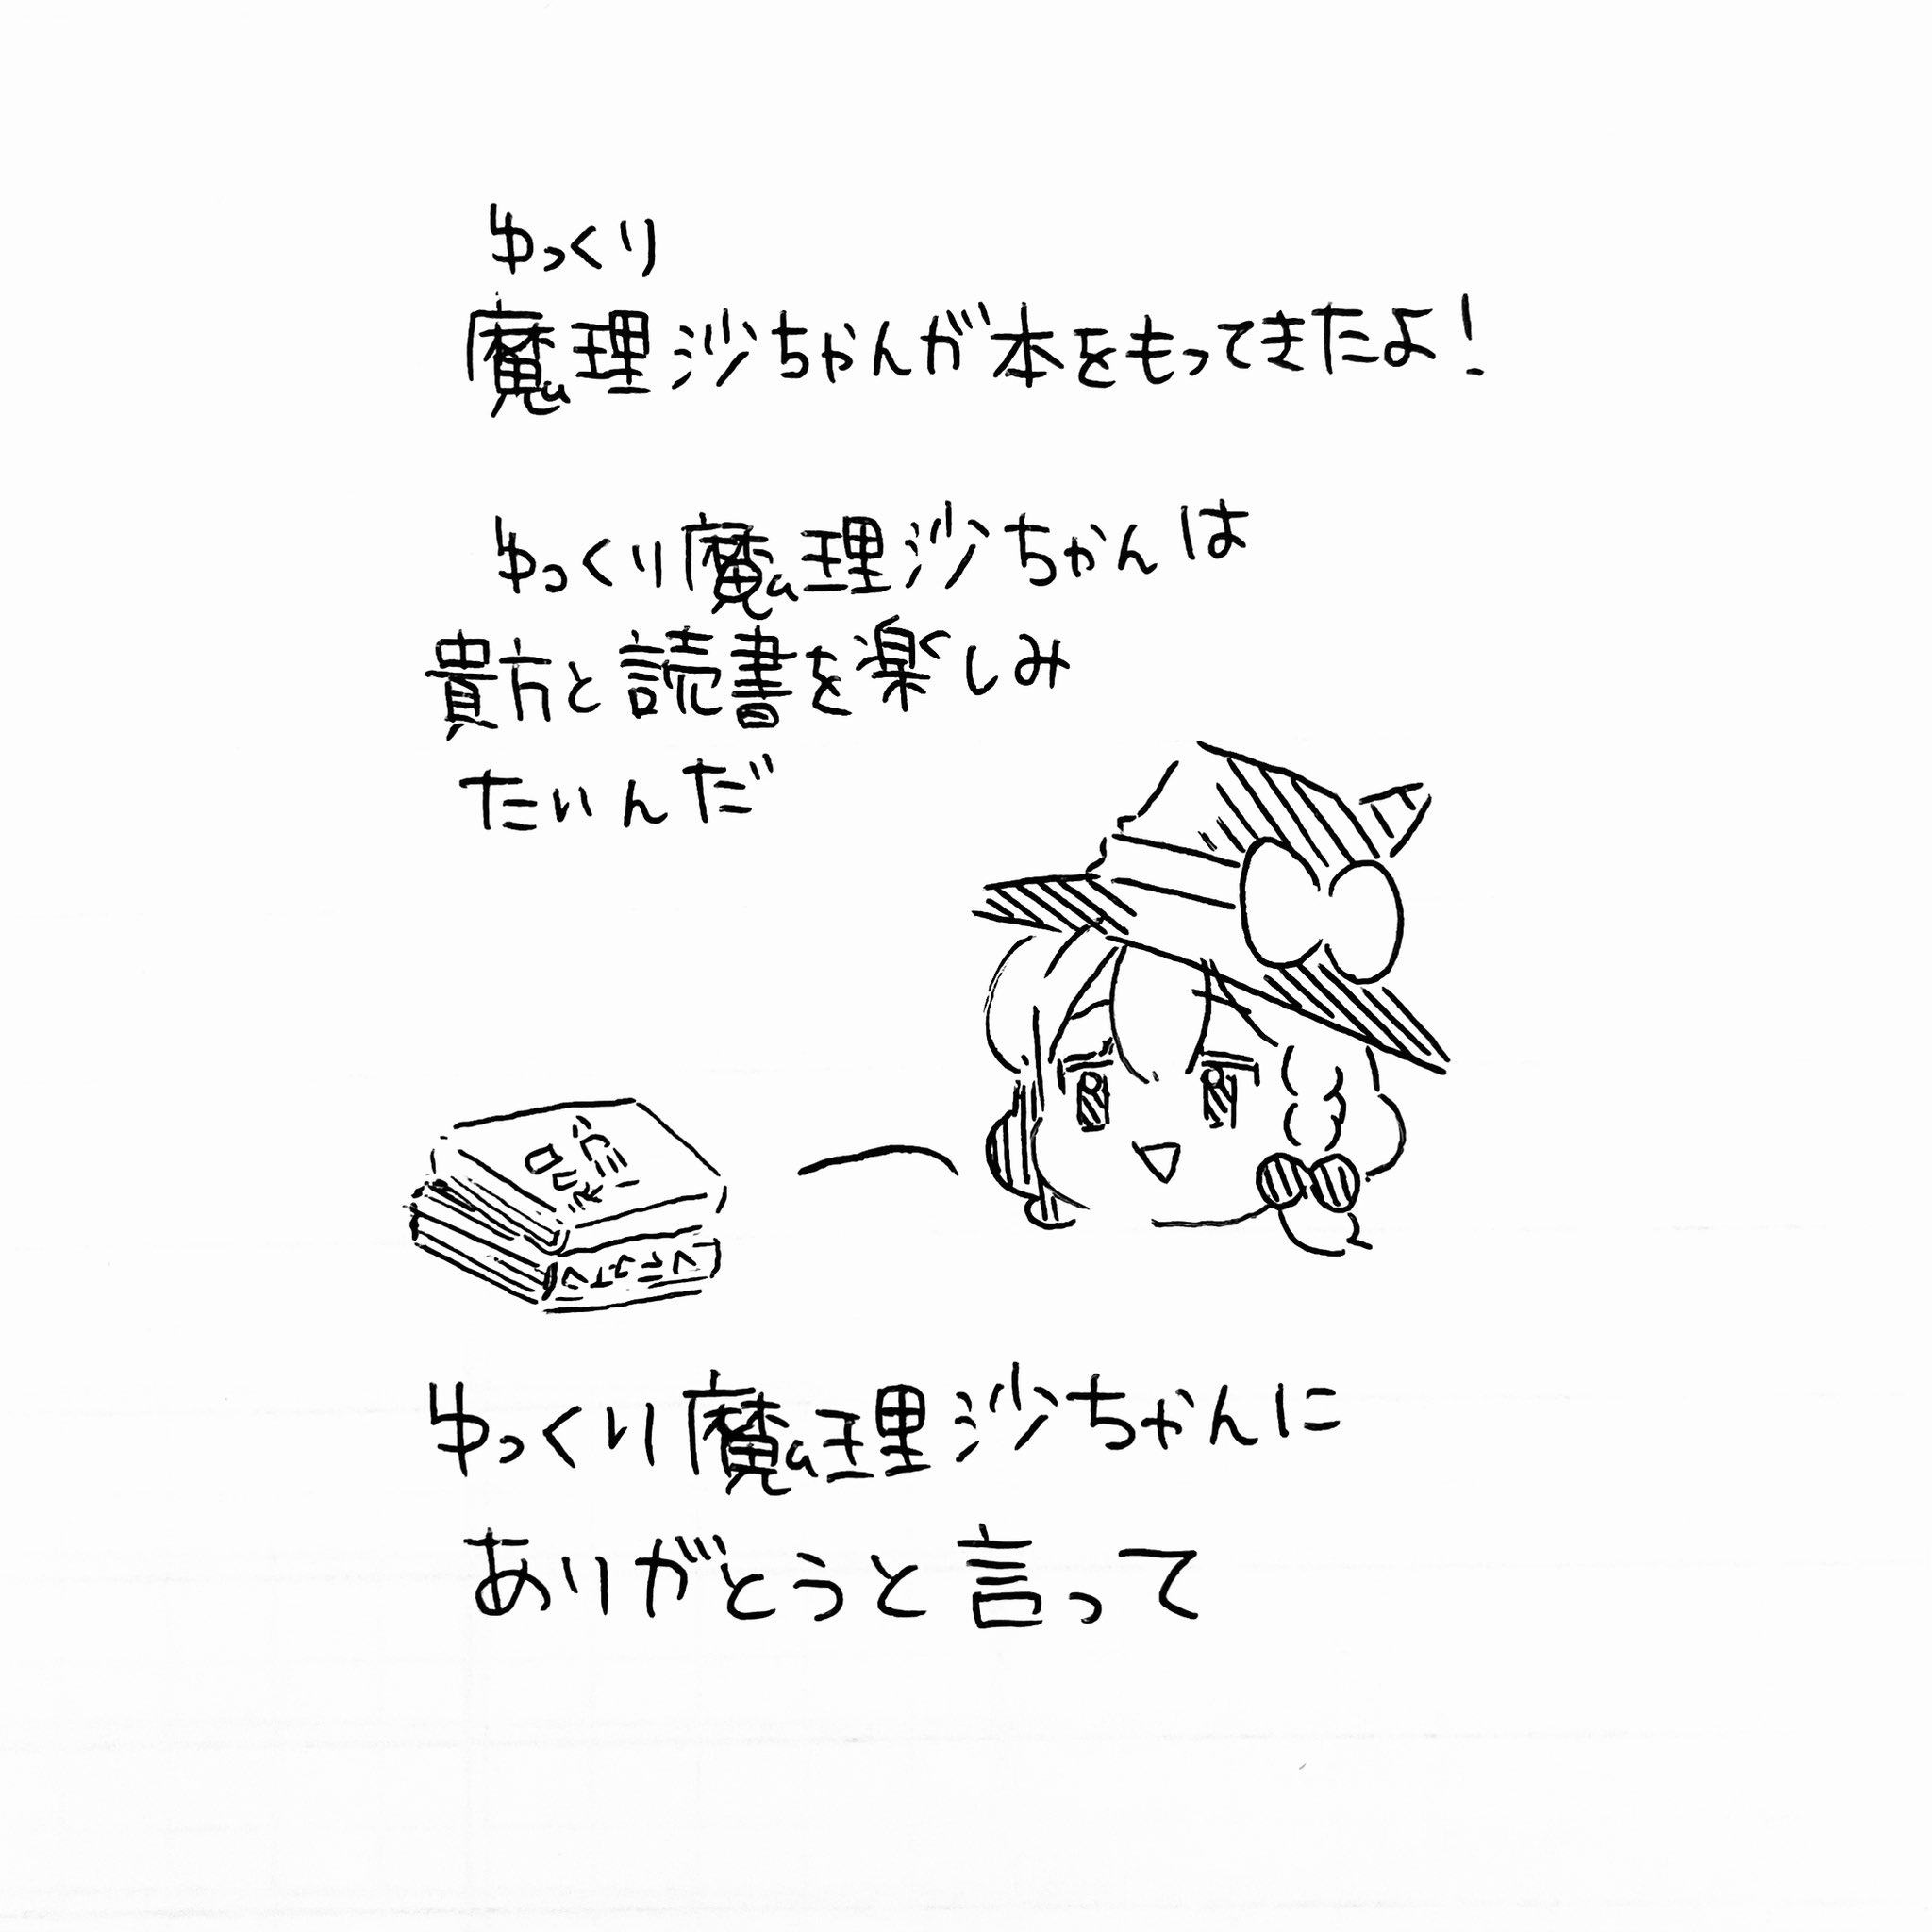 ゆっくり
魔理沙ちゃんが本をもってきたよ!
ゆっくり魔理沙ちゃんは
貴方と読書を楽しみ
たいんだ
ゆっくり魔理沙ちゃんに
ありがとうと言って